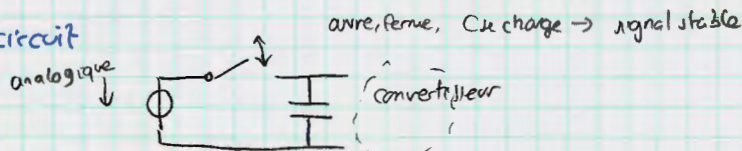 circuit
ouvre, ferme, C se charge → signal stable
analogique
convertisseur